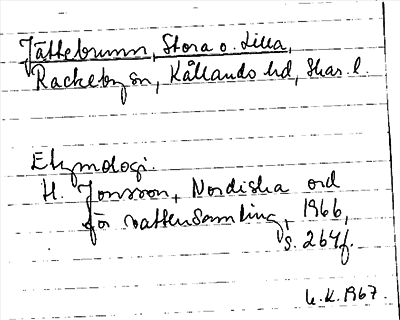 Jättebrunn, Stora o. Lilla,
Rackeby sn, Kållands hd, Skar. l.
Etymologi.
H. Jonsson, Nordiska ord
för vattensamling, 1966,
s. 264f.
U.K. 1967.